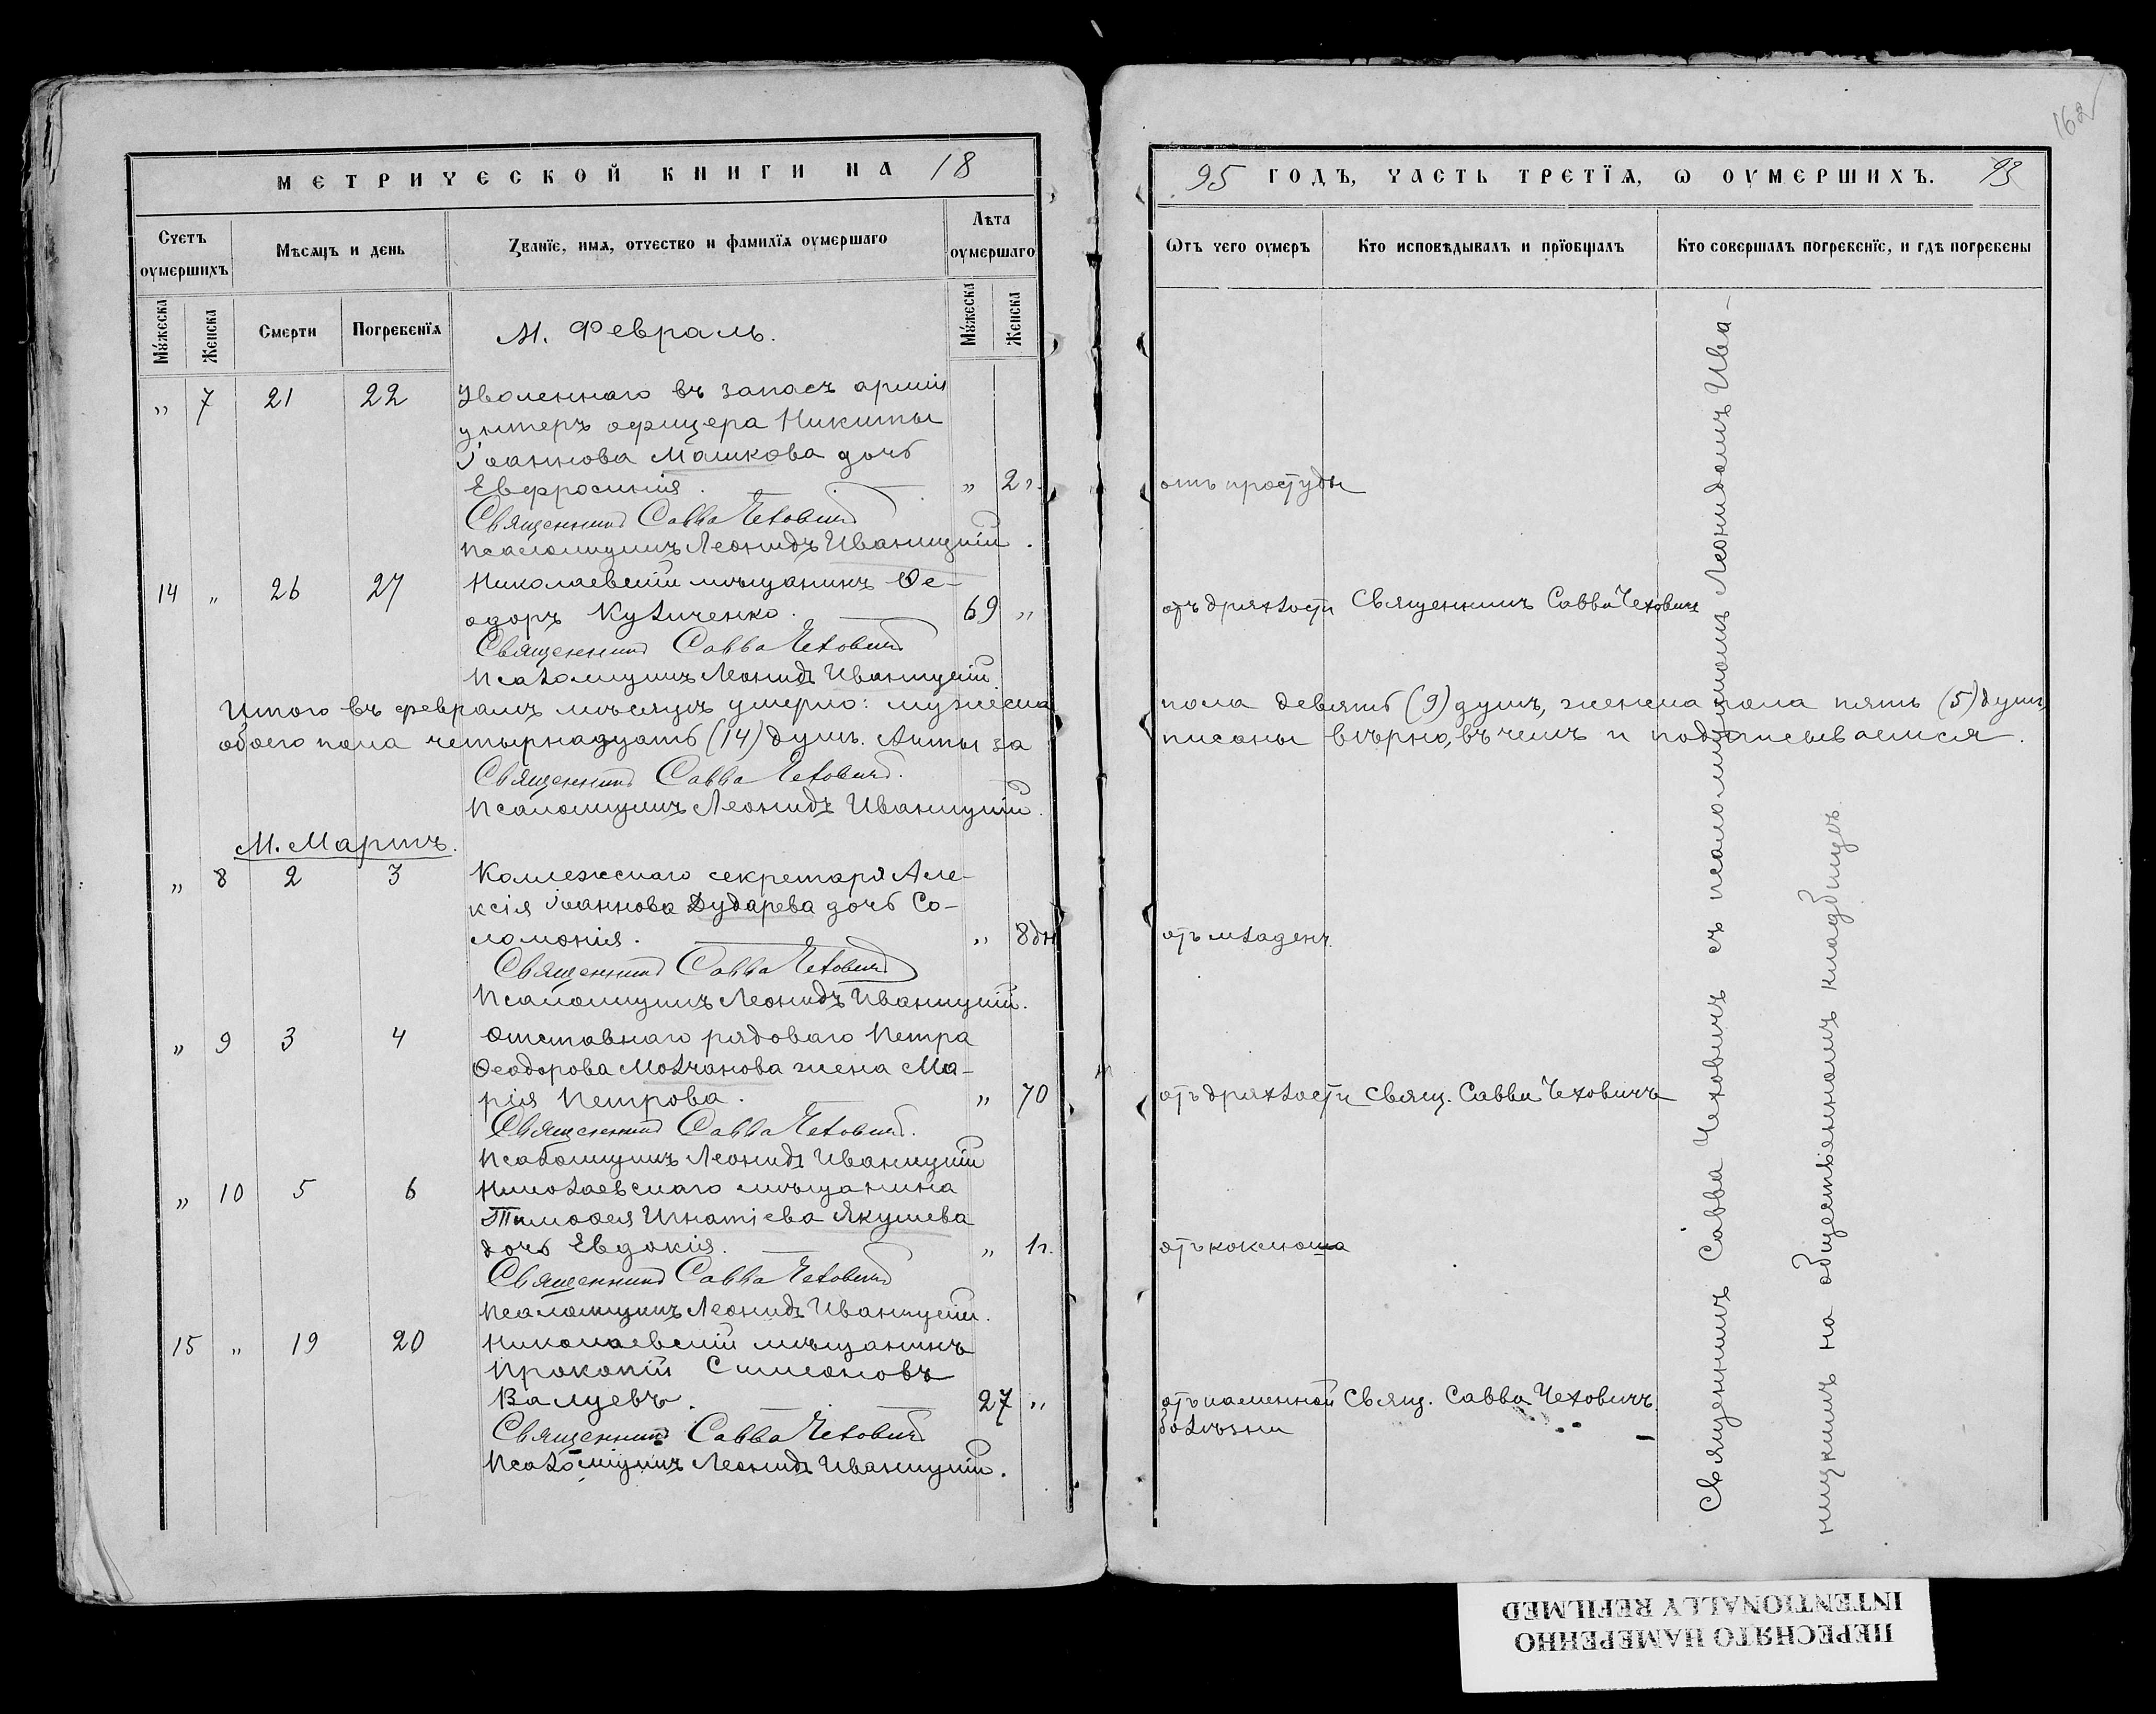 162
МЕТРИЧЕСКОЙ КНИГИ НА 18
95 ГОДЪ, ЧАСТЬ ТРЕТІЯ, Ѡ ОУМЕРШИХЪ. 93
Счетъ оумершихъ
Мѣсяцъ и день
Званіе, имя, отчество и фамилія оумершаго
Лѣта оумершаго
Ѿтъ чего оумеръ
Кто исповѣдывалъ и пріобщалъ
Кто совершалъ погребеніе, и гдѣ погребены
Мужеска
Женска
Смерти
Погребенія
М. Февраль.
Мужеска
Женска
„ 7 21 22 Уволеннаго въ запасъ арміи
унтеръ офицера Никиты
Іоаннова Машкова дочь
Евфросинія. „ 2 г. отъ простуды
Священникъ Савва Чеховичъ
Псаломщикъ Леонидъ Иваницкій.
14 „ 26 27 Николаевскій мѣщанинъ Ѳе-
одоръ Кузиченко. 69 „ отъ дряхлости Священникъ Савва Чеховичъ
Священникъ Савва Чеховичъ
Псаломщикъ Леонидъ Иваницкій.
Итого въ февралѣ мѣсяцѣ умерло: мужеска пола девять (9) душъ, женска пола пять (5) душъ,
обоего пола четырнадцать (14) душъ. Акты за писаны вѣрно, въ чемъ и подписываемся.
Священникъ Савва Чеховичъ.
Псаломщикъ Леонидъ Иваницкій.
М. Мартъ.
„ 8 2 3 Коллежскаго секретаря Але-
ксія Іоаннова Дударева дочь Со-
ломонія. „ 8 дн отъ младенч.
Священникъ Савва Чеховичъ
Псаломщикъ Леонидъ Иваницкій.
„ 9 3 4 Отставнаго рядоваго Петра
Ѳеодорова Молчанова жена Ма-
рія Петрова. „ 70 отъ дряхлости Свящ. Савва Чеховичъ
Священникъ Савва Чеховичъ.
Псаломщикъ Леонидъ Иваницкій
„ 10 5 6 Николаевскаго мѣщанина
Тимоѳея Игнатіева Якушева
дочь Евдокія. „ 1 г. отъ коклюша
Священникъ Савва Чеховичъ
Псаломщикъ Леонидъ Иваницкій.
15 „ 19 20 Николаевскій мѣщанинъ
Прокопій Симеоновъ
Валуевъ. 27 „ отъ каменной Свящ. Савва Чеховичъ.
болѣзни
Священникъ Савва Чеховичъ
Псаломщикъ Леонидъ Иваницкій.
Священникъ Савва Чеховичъ съ псаломщикомъ Леонидомъ Ива-
ницкимъ на общественномъ кладбищѣ.
ПЕРЕСНЯТО НАМЕРЕННО
INTENTIONALLY REFILMED